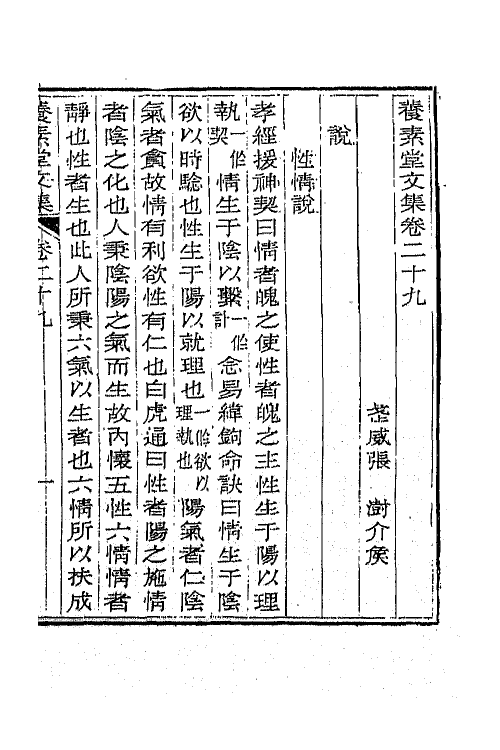 養素堂文集卷二十九
武威張 澍介侯
說
性情說
孝經援神契曰情者魄之使性者魄之主性生于陽以理
執一作契情生于陰以繫一作計念易緯鉤命訣曰情生于陰
欲以時騐也性生于陽以就理也一作欲以理執也陽氣者仁陰
氣者貪故情有利欲性有仁也白虎通曰性者陽之施情
者陰之化也人秉陰陽之氣而生故內懷五性六情情者
靜也性者生也此人所秉六氣以生者也六情所以扶成
養素堂文集 卷二十九 一